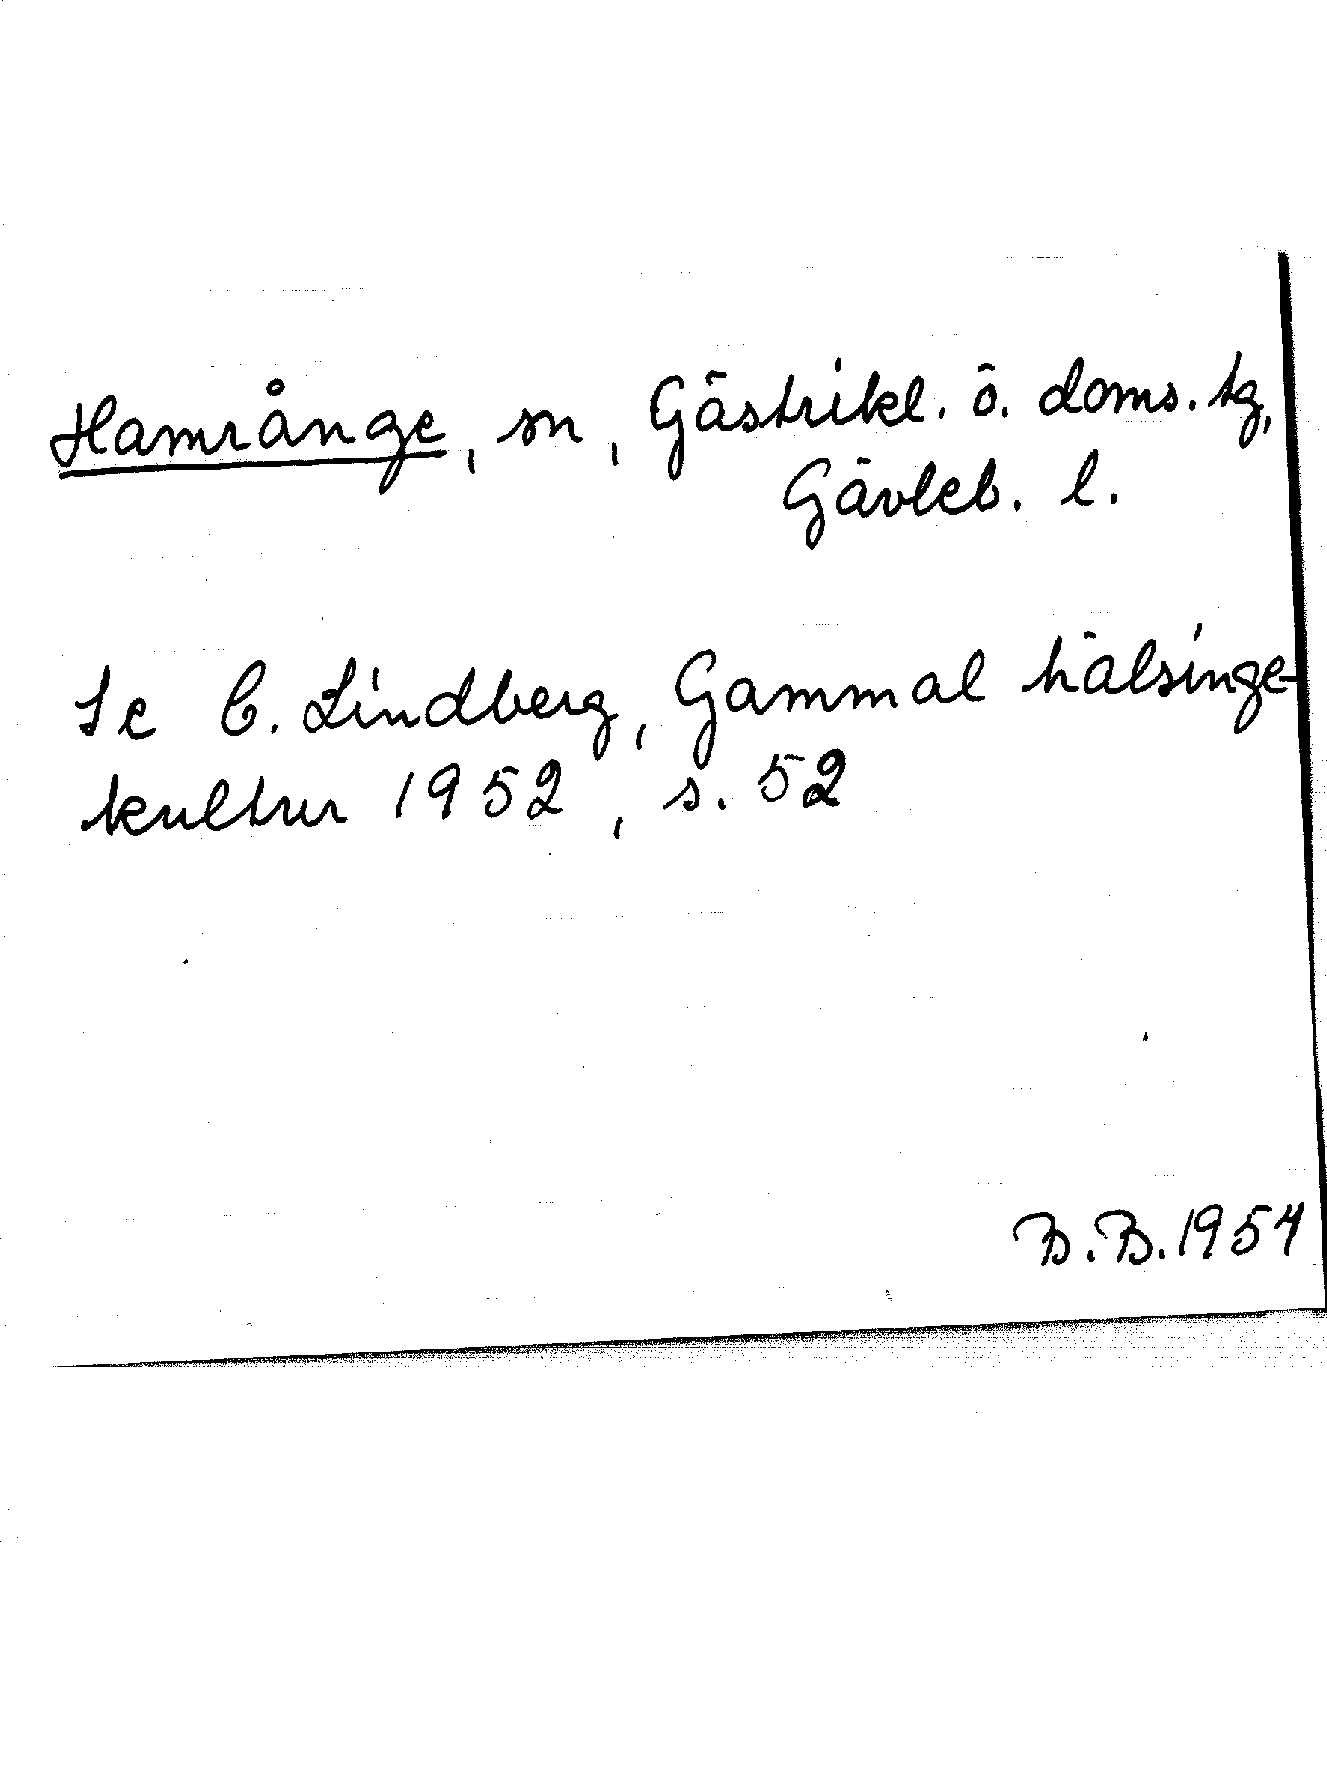 Hamrånge, sn, Gästrikl. ö. doms.tg,
Gävleb. l.
Se C. Lindberg, Gammal hälsinge-
kultur 1952, s. 52
B.B.1954